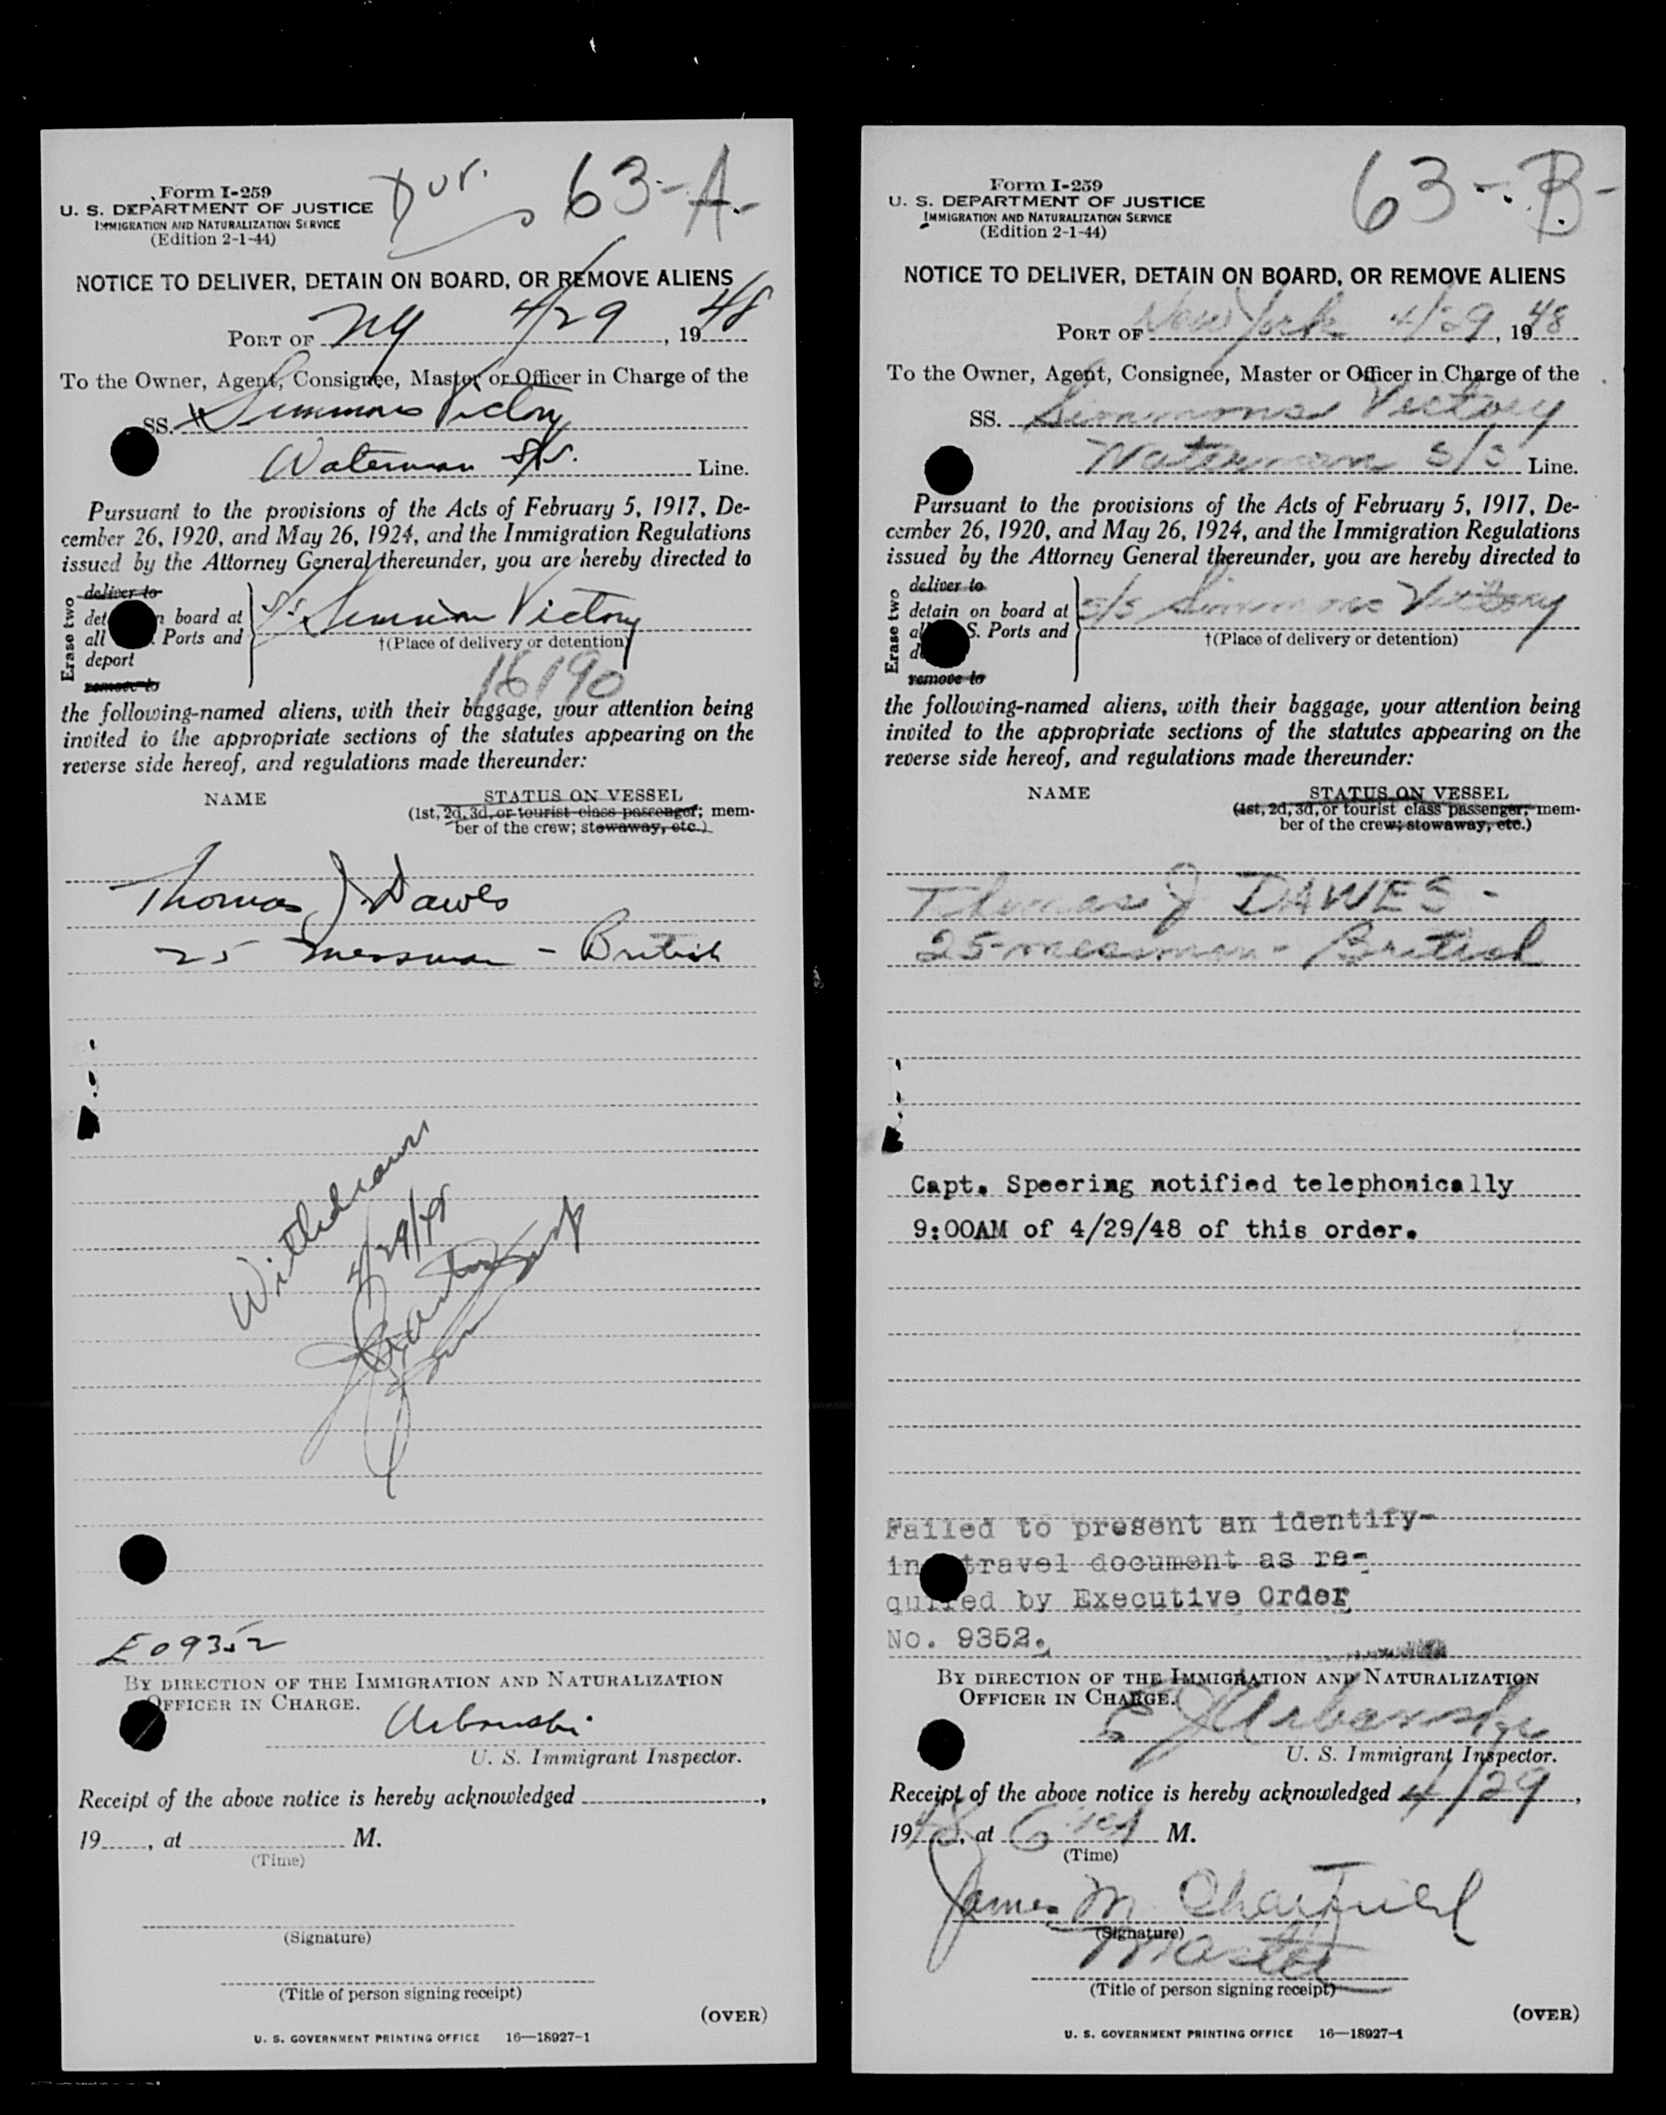 Dup. 63-A-
Form I-259
U. S. DEPARTMENT OF JUSTICE
IMMIGRATION AND NATURALIZATION SERVICE
(Edition 2-1-44)
NOTICE TO DELIVER, DETAIN ON BOARD, OR REMOVE ALIENS
PORT OF NY 4/29, 1948
To the Owner, Agent, Consignee, Master or Officer in Charge of the
SS. Simmons Victory
Waterman S/S. Line.
Pursuant to the provisions of the Acts of February 5, 1917, De-
cember 26, 1920, and May 26, 1924, and the Immigration Regulations
issued by the Attorney General thereunder, you are hereby directed to
Erase two
deliver to
det n board at
all . Ports and
deport
remove to
S/S Simmons Victory
†(Place of delivery or detention)
16190
the following-named aliens, with their baggage, your attention being
invited to the appropriate sections of the statutes appearing on the
reverse side hereof, and regulations made thereunder:
NAME STATUS ON VESSEL
(1st, 2d, 3d, or tourist class passenger; mem-
ber of the crew; stowaway, etc.)
Thomas J Dawes
25 messman - British
Withdrawn
4/29/48
E O 9352
BY DIRECTION OF THE IMMIGRATION AND NATURALIZATION
OFFICER IN CHARGE.
Urbanski
U. S. Immigrant Inspector.
Receipt of the above notice is hereby acknowledged ,
19 , at M.
(Time)
(Signature)
(Title of person signing receipt)
(OVER)
U. S. GOVERNMENT PRINTING OFFICE 16—18927-1
63-B-
Form I-259
U. S. DEPARTMENT OF JUSTICE
IMMIGRATION AND NATURALIZATION SERVICE
(Edition 2-1-44)
NOTICE TO DELIVER, DETAIN ON BOARD, OR REMOVE ALIENS
PORT OF New York 4/29, 1948
To the Owner, Agent, Consignee, Master or Officer in Charge of the
SS. Simmons Victory
Waterman S/S Line.
Pursuant to the provisions of the Acts of February 5, 1917, De-
cember 26, 1920, and May 26, 1924, and the Immigration Regulations
issued by the Attorney General thereunder, you are hereby directed to
Erase two
deliver to
detain on board at
al S. Ports and
de
remove to
S/S Simmons Victory
†(Place of delivery or detention)
the following-named aliens, with their baggage, your attention being
invited to the appropriate sections of the statutes appearing on the
reverse side hereof, and regulations made thereunder:
NAME STATUS ON VESSEL
(1st, 2d, 3d, or tourist class passenger; mem-
ber of the crew; stowaway, etc.)
Thomas J DAWES -
25-messman - British
Capt. Speering notified telephonically
9:00AM of 4/29/48 of this order.
Failed to present an identify-
in travel document as re-
quired by Executive Order
No. 9352.
BY DIRECTION OF THE IMMIGRATION AND NATURALIZATION
OFFICER IN CHARGE.
E J Urbansky
U. S. Immigrant Inspector.
Receipt of the above notice is hereby acknowledged 4/29,
1948, at 6 M.
(Time)
James M Chatfield
(Signature)
Master
(Title of person signing receipt)
(OVER)
U. S. GOVERNMENT PRINTING OFFICE 16—18927-1